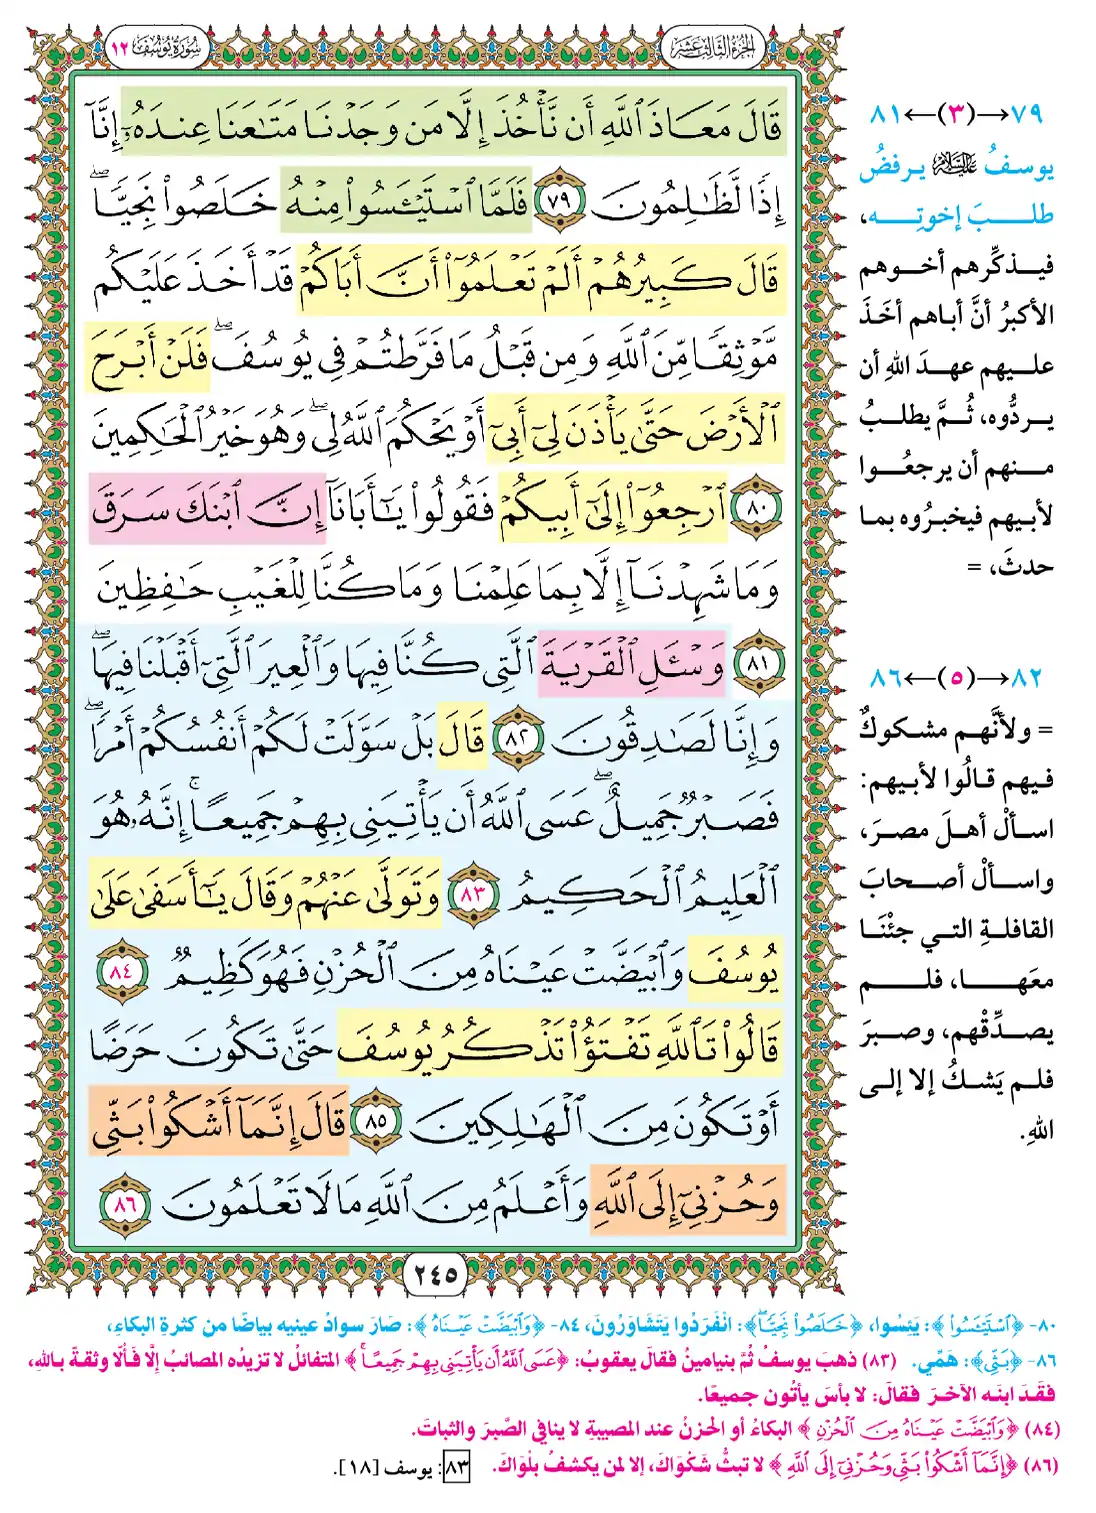 الجزء الثالث عشر
سورة يوسف ١٢
قَالَ مَعَاذَ ٱللَّهِ أَن نَّأۡخُذَ إِلَّا مَن وَجَدۡنَا مَتَٰعَنَا عِندَهُۥٓ إِنَّآ
إِذٗا لَّظَٰلِمُونَ ٧٩ فَلَمَّا ٱسۡتَيۡـَٔسُواْ مِنۡهُ خَلَصُواْ نَجِيّٗاۖ
قَالَ كَبِيرُهُمۡ أَلَمۡ تَعۡلَمُوٓاْ أَنَّ أَبَاكُمۡ قَدۡ أَخَذَ عَلَيۡكُم
مَّوۡثِقٗا مِّنَ ٱللَّهِ وَمِن قَبۡلُ مَا فَرَّطتُمۡ فِي يُوسُفَۖ فَلَنۡ أَبۡرَحَ
ٱلۡأَرۡضَ حَتَّىٰ يَأۡذَنَ لِيٓ أَبِيٓ أَوۡ يَحۡكُمَ ٱللَّهُ لِيۖ وَهُوَ خَيۡرُ ٱلۡحَٰكِمِينَ
٨٠ ٱرۡجِعُوٓاْ إِلَىٰٓ أَبِيكُمۡ فَقُولُواْ يَٰٓأَبَانَآ إِنَّ ٱبۡنَكَ سَرَقَ
وَمَا شَهِدۡنَآ إِلَّا بِمَا عَلِمۡنَا وَمَا كُنَّا لِلۡغَيۡبِ حَٰفِظِينَ
٨١ وَسۡـَٔلِ ٱلۡقَرۡيَةَ ٱلَّتِي كُنَّا فِيهَا وَٱلۡعِيرَ ٱلَّتِيٓ أَقۡبَلۡنَا فِيهَاۖ
وَإِنَّا لَصَٰدِقُونَ ٨٢ قَالَ بَلۡ سَوَّلَتۡ لَكُمۡ أَنفُسُكُمۡ أَمۡرٗاۖ
فَصَبۡرٞ جَمِيلٌۖ عَسَى ٱللَّهُ أَن يَأۡتِيَنِي بِهِمۡ جَمِيعًاۚ إِنَّهُۥ هُوَ
ٱلۡعَلِيمُ ٱلۡحَكِيمُ ٨٣ وَتَوَلَّىٰ عَنۡهُمۡ وَقَالَ يَٰٓأَسَفَىٰ عَلَىٰ
يُوسُفَ وَٱبۡيَضَّتۡ عَيۡنَاهُ مِنَ ٱلۡحُزۡنِ فَهُوَ كَظِيمٞ ٨٤
قَالُواْ تَٱللَّهِ تَفۡتَؤُاْ تَذۡكُرُ يُوسُفَ حَتَّىٰ تَكُونَ حَرَضًا
أَوۡ تَكُونَ مِنَ ٱلۡهَٰلِكِينَ ٨٥ قَالَ إِنَّمَآ أَشۡكُواْ بَثِّي
وَحُزۡنِيٓ إِلَى ٱللَّهِ وَأَعۡلَمُ مِنَ ٱللَّهِ مَا لَا تَعۡلَمُونَ ٨٦
٢٤٥
٧٩→(٣)←٨١
يوسفُ عليه السلام يرفضُ
طلبَ إخوتِه،
فيذكِّرهم أخوهم
الأكبرُ أنَّ أباهم أخَذَ
عليهم عهدَ اللهِ أن
يردُّوه، ثُمَّ يطلبُ
منهم أن يرجعُوا
لأبيهم فيخبرُوه بما
حدثَ، =
٨٢→(٥)←٨٦
= ولأنَّهم مشكوكٌ
فيهم قالُوا لأبيهم:
اسألْ أهلَ مصرَ،
واسألْ أصحابَ
القافلةِ التي جئْنَا
معَها، فلم
يصدِّقْهم، وصبرَ
فلم يَشكُ إلا إلى
اللهِ.
٨٠- ﴿ٱسۡتَيۡـَٔسُواْ﴾: يَئِسُوا، ﴿خَلَصُواْ نَجِيّٗاۖ﴾: انْفَرَدُوا يَتَشَاوَرُونَ، ٨٤- ﴿وَٱبۡيَضَّتۡ عَيۡنَاهُ﴾: صَارَ سوادُ عينيه بياضًا من كثرةِ البكاءِ،
٨٦- ﴿بَثِّي﴾: هَمِّي. (٨٣) ذهبَ يوسفُ ثُمَّ بنيامينُ فقالَ يعقوبُ: ﴿عَسَى ٱللَّهُ أَن يَأۡتِيَنِي بِهِمۡ جَمِيعًاۚ﴾ المتفائلُ لا تزيدُه المصائبُ إلَّا فَألًا وثقةً باللهِ،
فقَدَ ابنَه الآخرَ فقالَ: لا بأسَ يأتُون جميعًا.
(٨٤) ﴿وَٱبۡيَضَّتۡ عَيۡنَاهُ مِنَ ٱلۡحُزۡنِ﴾ البكاءُ أو الحزنُ عند المصيبةِ لا ينافي الصَّبرَ والثباتَ.
(٨٦) ﴿إِنَّمَآ أَشۡكُواْ بَثِّي وَحُزۡنِيٓ إِلَى ٱللَّهِ﴾ لا تبثُّ شَكْوَاكَ، إلا لمن يكشفُ بلْوَاكَ. ٨٣: يوسف [١٨].